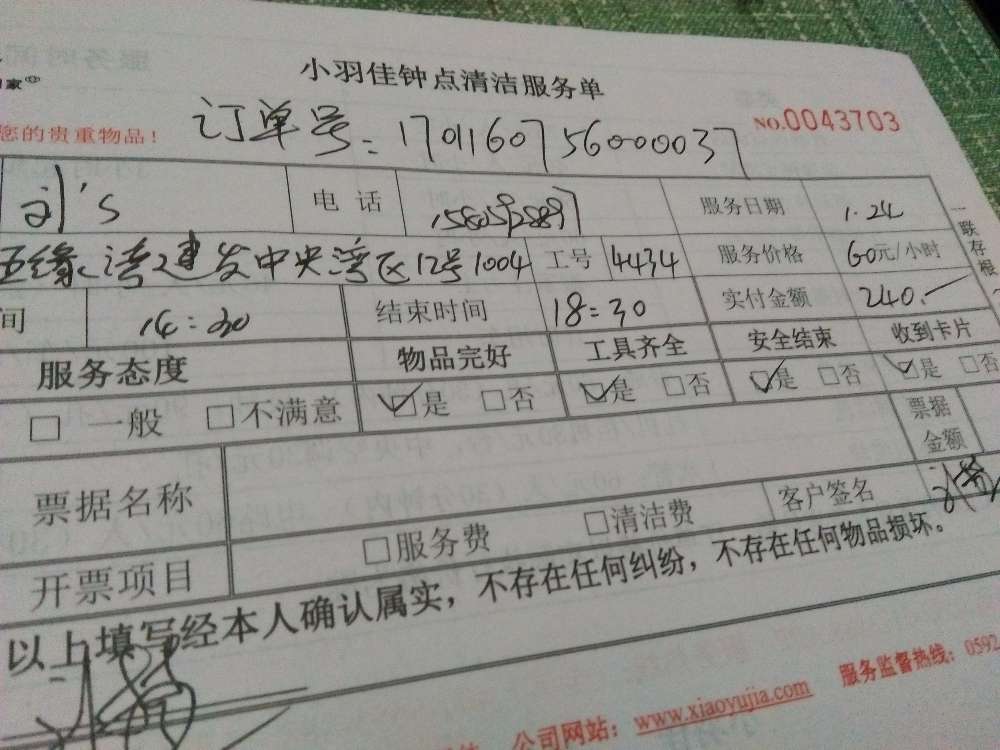 家®
小羽佳钟点清洁服务单
您的贵重物品!
订单号: 170116075600037
NO.0043703
电话
服务日期 1.24
一联存根
五缘湾建发中央湾区12号1004 工号 4434 服务价格 60元/小时
间 14:30 结束时间 18:30 实付金额 240.-
服务态度 物品完好 工具齐全 安全结束 收到卡片
□ 一般 □不满意 ☑是 □否 ☑是 □否 ☑是 □否 ☑是 □否
票据名称 票据金额
开票项目 □服务费 □清洁费 客户签名
以上填写经本人确认属实，不存在任何纠纷，不存在任何物品损坏。
公司网站：www.xiaoyujia.com 服务监督热线：0592